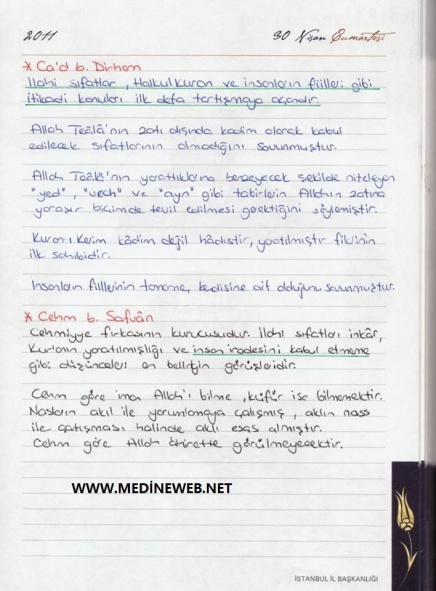 2011
30 Nisan Cumartesi
* Ca'd b. Dirhem
İlahi sıfatlar, Halkul Kuran ve insanların fiilleri gibi
itikadi konuları ilk defa tartışmaya açandır.
Allah Teâlâ'nın zatı dışında kadim olarak kabul
edilecek sıfatlarının olmadığını savunmuştur.
Allah Teâlâ'nın yarattıklarına benzeyecek şekilde niteleyen
"yed", "vech" ve "ayn" gibi tabirlerin Allahın zatına
yaraşır biçimde tevil edilmesi gerektiğini söylemiştir.
Kuran-ı Kerim kâdim değil hâdistir, yaratılmıştır fikrinin
ilk sahibidir.
İnsanların fiillerinin tamamı, kendisine ait olduğunu savunmuştur.
* Cehm b. Safvân
Cehmiyye fırkasının kurucusudur. İlahi sıfatları inkâr,
Kur'anın yaratılmışlığı ve insan iradesini kabul etmeme
gibi düşünceleri en belirgin görüşleridir.
Cehm göre iman Allah'ı bilme, küfür ise bilmemektir.
Nasların akıl ile yorumlamaya çalışmış, aklın nass
ile çatışması halinde aklı esas almıştır.
Cehm göre Allah âhirette görülmeyecektir.
WWW.MEDINEWEB.NET
İSTANBUL İL BAŞKANLIĞI